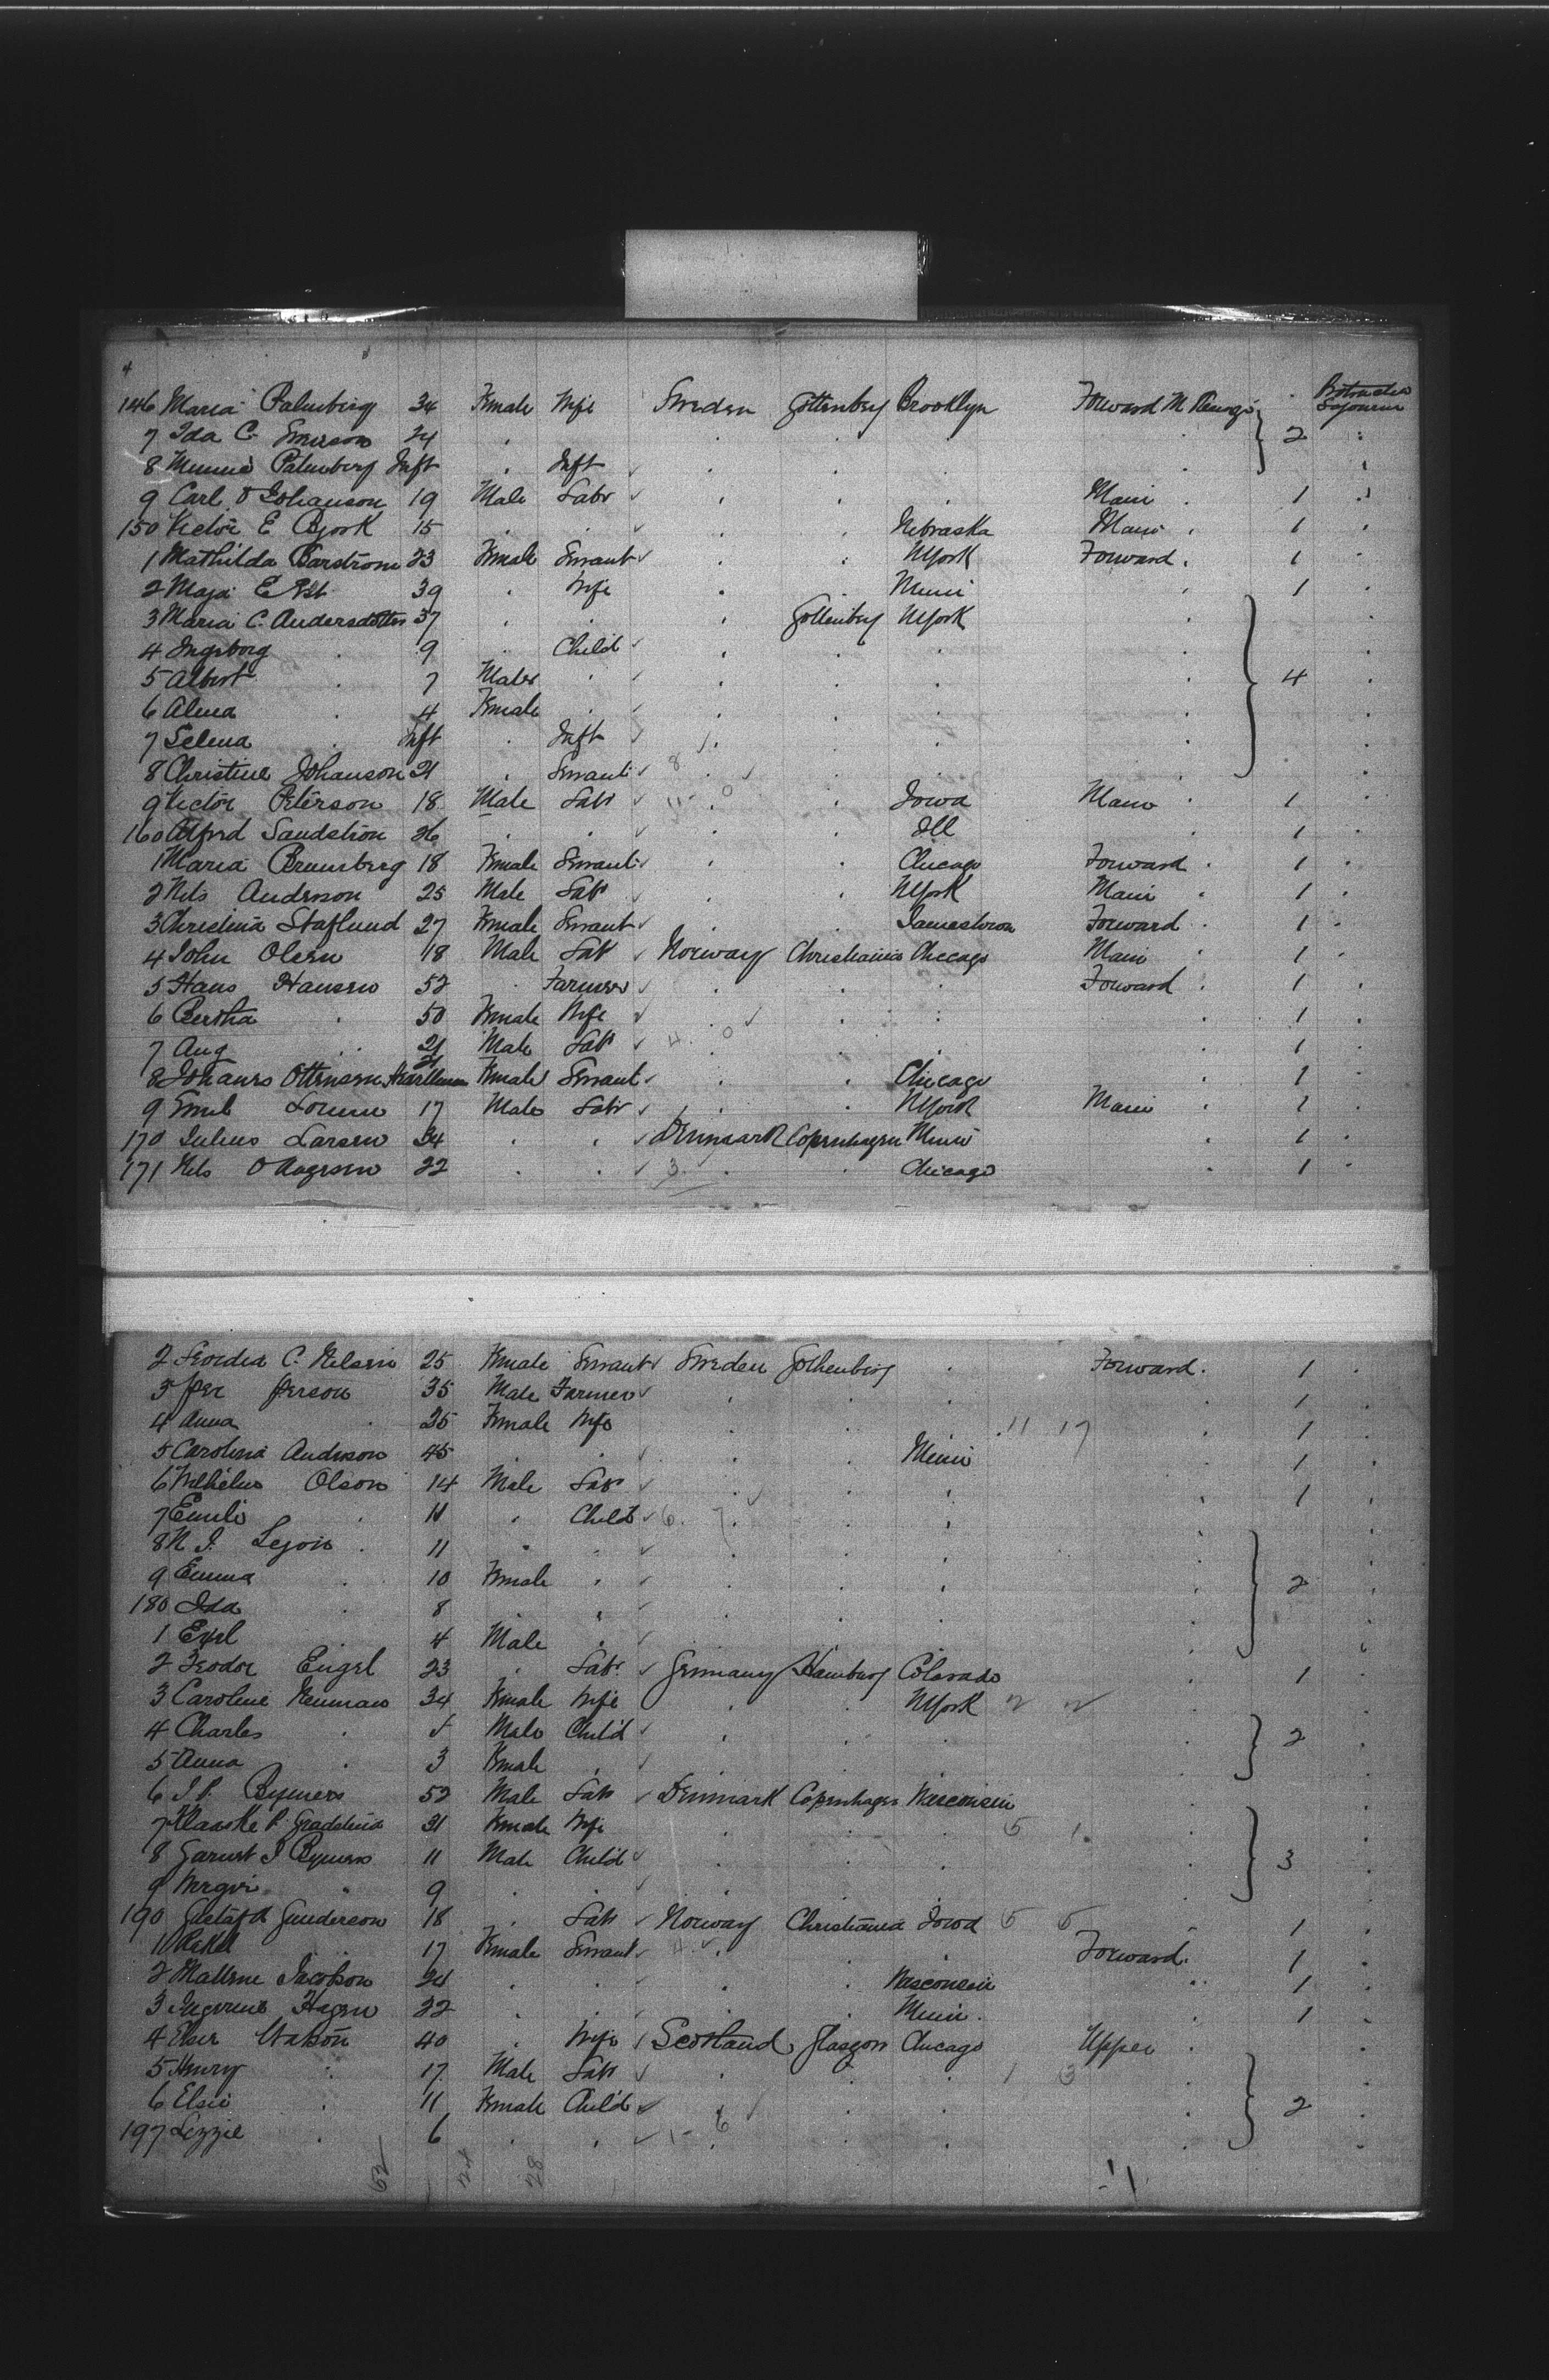 146 Maria Palmberg 34 Female Wife Sweden Gottenbey Brooklyn Forward M Steerge
7 Ida C. Emerson 24 . . . . . 2
8 Minnie Palmberg Inft . Inft . . .
9 Carl O Johanson 19 Male Labr . . . Main . 1
150 Victor E Bjork 15 . . . . Nebraska Main . 1
1 Mathilda Barstrom 23 Female Servant . . NYork Forward . 1
2 Maja E 39 . Wife . Minn . 1
3 Maria C. Andersdotter 37 . . . Gottenbey NYork .
4 Ingeborg . 9 . Child . . . .
5 Albert . 7 Male . . . . . 4
6 Alma . 4 Female . . . . .
7 Selma . Inft . Inft . . . .
8 Christine Johanson 21 . Servant 8 . . . .
9 Victor Peterson 18 Male Labr 11 - 0 . Iowa Main . 1
160 Alfred Sandstrom 26 . . . . Ill . 1
1 Maria Brunsberg 18 Female Servant . . Chicago Forward . 1
2 Nils Anderson 25 Male Labr . . NYork Main . 1
3 Christina Staflund 27 Female Servant . . Jamestown Forward . 1
4 John Olsen 18 Male Labr Norway Christiania Chicago Main . 1
5 Hans Hansen 52 . Farmer . . . Forward . 1
6 Bertha . 50 Female Wife . . . . 1
7 Aug . 21 Male Labr 4 . 0 . . . 1
8 Johanes Ottensen 21 Female Servant . . Chicago . 1
9 Emil Lorens 17 Male Labr . . NYork Main . 1
170 Julius Larsen 34 . . Denmark Copenhagen Minn . 1
171 Nils O Aagesen 22 . . 3 . . Chicago . 1
2 C. Nelsen 25 Female Servant Sweden Gothenberg . Forward . 1
3 Per Person 35 Male Farmer . . . . 1
4 Anna . 25 Female Wife . . . 11 17 . 1
5 Carolina Anderson 45 . . . . Minn . 1
6 Wilhelm Olson 14 Male Labr . . . . 1
7 Emili . 11 . Child 6 . 7 . . .
8 N J. Lejon . 11 . . . . . .
9 Emma . 10 Female . . . . . 2
180 Ida . 8 . . . . . .
1 Exel . 4 Male . . . . .
2 Feodor Engel 23 . Labr. Germany Hamburg Colorado . 1
3 Caroline Neuman 34 Female Wife . . NYork 2 2 .
4 Charles . 5 Male Child . . . . 2
5 Anna . 3 Female . . . . .
6 J P. Bymers 52 Male Labr Denmark Copenhagen Wisconsin .
7 Klaaske P. 31 Female Wife . . . 5 1 .
8 J Bymers 11 Male Child . . . . 3
9 . 9 . . . . . .
190 Gustaf A Gunderson 18 . Labr Norway Christiania Iowa 5 5 . 1
1 Rakel . 17 Female Servant 4 . . . Forward . 1
2 Mallene Jacobson 24 . . . . Wisconsin . 1
3 Hagen 22 . . . . Minn . . 1
4 Elser Watson 40 . Wife Scotland Glasgow Chicago Upper .
5 Henry . 17 Male Labr . . . 1 3 .
6 Elsie . 11 Female Child . . . . 2
197 Lizzie . 6 . . 1 - 6 . . .
52 24 28